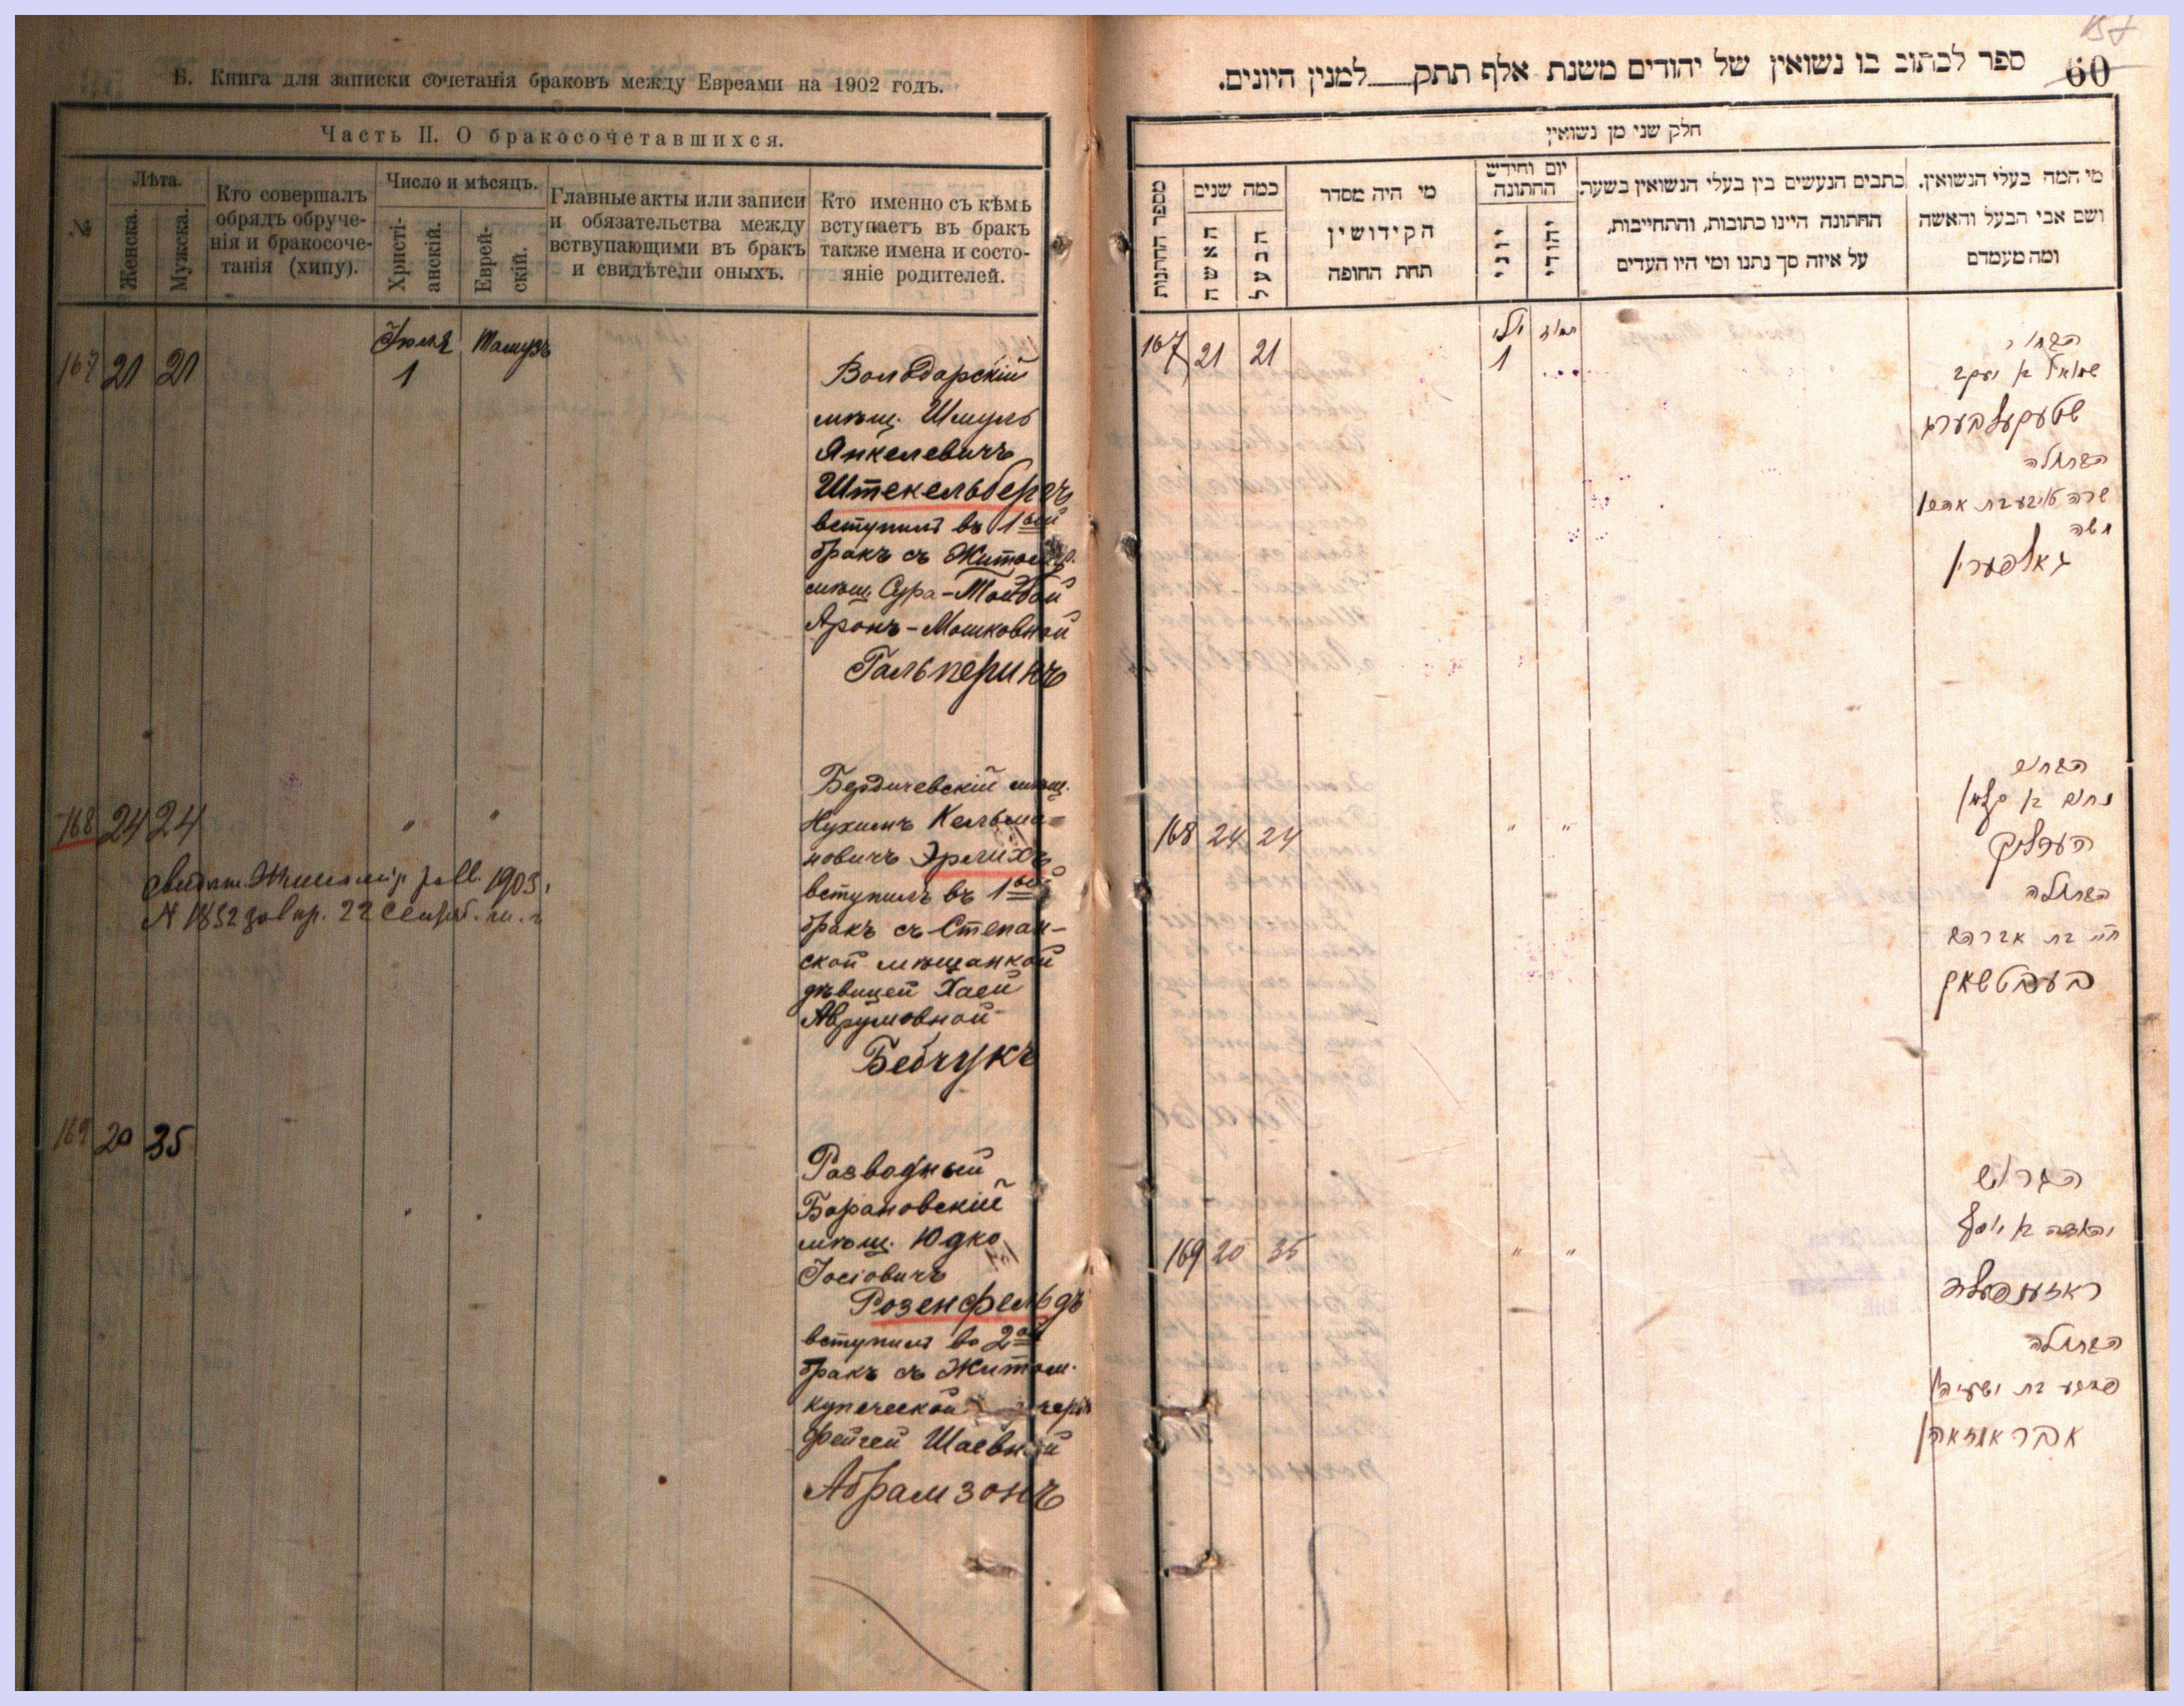 Б. Книга для записки сочетанія браковъ между Евреями на 1902 годъ.
Часть II. О бракосочетавшихся.
№
Лѣта.
Женска.
Мужска.
Кто совершалъ
обрядъ обруче-
нія и бракосоче-
танія (хипу).
Число и мѣсяцъ.
Христі-
анскій.
Еврей-
скій.
Главные акты или записи
и обязательства между
вствупающими въ бракъ
и свидѣтели оныхъ.
Кто именно съ кѣмъ
вступаетъ въ бракъ
также имена и состо-
яніе родителей.
167 21 21
Іюля 1
Тамузъ
Володарскій
мѣщ. Шмуль
Янкелевичъ
Штекельбергъ
вступилъ въ 1ый
бракъ съ Житомир.
мѣщ. Сура-Тойбой
Аронъ-Мошковной
Гальперинъ
168 24 24
" "
Бердичевскій мѣщ.
Нухимъ Кельма-
новичъ Эрлихъ
вступилъ въ 1ый
бракъ съ Степан-
ской мѣщанкой
дѣвицей Хаей
Аврумовной
Бебчукъ
1903
22
169 20 35
" "
Разводный
Барановскій
мѣщ. Юдко
Іосіовичъ
Розенфельдъ
вступилъ во 2ой
бракъ съ Житом.
купеческой
Фейгей Шаевной
Абрамзонъ
60
ספר לכתוב בו נשואין של יהודים משנת אלף תתק למנין היונים.
חלק שני מן נשואין
מספר החתונות
כמה שנים
האשה
הבעל
מי היה מסדר
הקידושין
תחת החופה
יום וחידש
החתונה
יוני
יהודי
כתבים הנעשים בין בעלי הנשואין בשעת
החתונה היינו כתובות, והתחייבות,
על איזה סך נתנו ומי היו העדים
מי המה בעלי הנשואין.
ושם אבי הבעל והאשה
ומה מעמדם
167 21 21
יולי 1
תמוז
הבחור
שמואל ב יעקב
שטעקעלבערג
הבתולה
שרה טויבע בת אהרן
משה
גאלפערין
168 24 24
" "
הבחור
נחום ב קלמן
העדליק
הבתולה
חי' בת אברהם
בעבטשאק
169 20 35
" "
הגרוש
יהודה ב יוסף
ראזענפעלד
הבתולה
פייגע בת ישעיה
אבראמזאהן